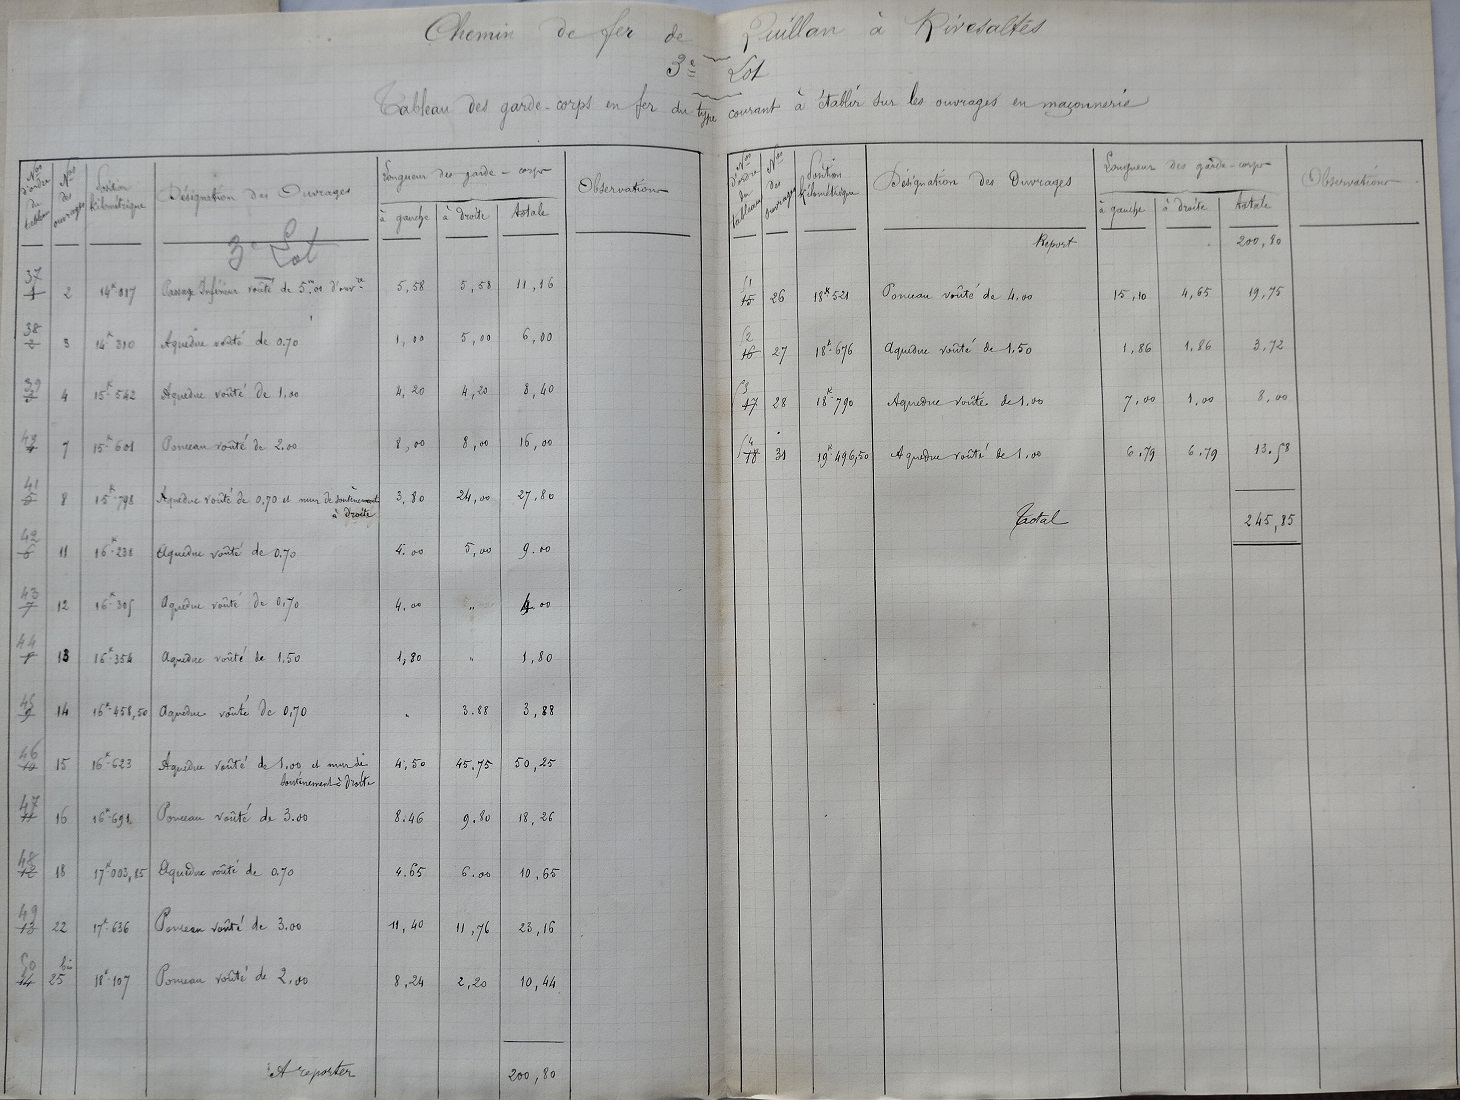 Chemin de fer de Quillan à Rivesaltes
3e Lot
Tableau des garde-corps en fer du type courant à établir sur les ouvrages en maçonnerie
Nos d'ordre du tableau | Nos des ouvrages | Position kilométrique | Désignation des Ouvrages | Longueur des garde-corps | Observations
à gauche | à droite | Totale
3e Lot
37 1 | 2 | 14k 017 | Passage Inférieur voûté de 5m,00 d'ouvre | 5,58 | 5,58 | 11,16
38 2 | 3 | 14k 310 | Aqueduc voûté de 0.70 | 1,00 | 5,00 | 6,00
39 3 | 4 | 15k 542 | Aqueduc voûté de 1.00 | 4,20 | 4,20 | 8,40
40 4 | 7 | 15k 601 | Ponceau voûté de 2.00 | 8,00 | 8,00 | 16,00
41 5 | 8 | 15k 798 | Aqueduc voûté de 0,70 et mur de soutènement | 3,80 | 24,00 | 27,80
à droite
42 6 | 11 | 16k 238 | Aqueduc voûté de 0.70 | 4.00 | 5,00 | 9.00
43 7 | 12 | 16k 305 | Aqueduc voûté de 0,70 | 4.00 | " | 4.00
44 8 | 13 | 16k 354 | Aqueduc voûté de 1.50 | 1,80 | " | 1,80
45 9 | 14 | 16k 458,50 | Aqueduc voûté de 0,70 | " | 3.88 | 3,88
46 10 | 15 | 16k 623 | Aqueduc voûté de 1.00 et mur de | 4,50 | 45.75 | 50,25
soutènement à droite
47 11 | 16 | 16k 691 | Ponceau voûté de 3.00 | 8.46 | 9.80 | 18,26
48 12 | 18 | 17k 003,85 | Aqueduc voûté de 0.70 | 4.65 | 6.00 | 10,65
49 13 | 22 | 17k 636 | Ponceau voûté de 3.00 | 11,40 | 11,76 | 23,16
50 14 | 25 bis | 18k 107 | Ponceau voûté de 2,00 | 8,24 | 2,20 | 10,44
A reporter | 200,80
Nos d'ordre du tableau | Nos des ouvrages | Position kilométrique | Désignation des Ouvrages | Longueur des garde-corps | Observations
à gauche | à droite | Totale
Report | 200,80
51 15 | 26 | 18k 521 | Ponceau voûté de 4.00 | 15,10 | 4,65 | 19,75
52 16 | 27 | 18k 676 | Aqueduc voûté de 1.50 | 1,86 | 1,86 | 3,72
53 17 | 28 | 18k 790 | Aqueduc voûté de 1.00 | 7,00 | 1,00 | 8,00
54 18 | 31 | 19k 496,50 | Aqueduc voûté de 1.00 | 6.79 | 6.79 | 13.58
Total | 245,85